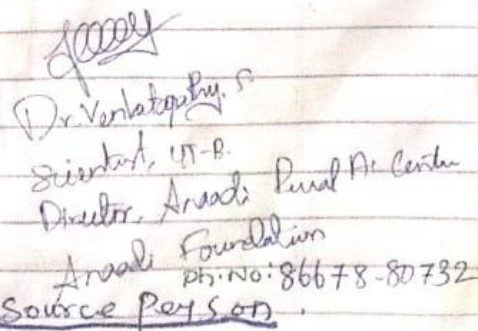 Dr. Venkatapathy. S
Scientist, IIT-B.
Director, Anaadi Rural AI Centre
Anaadi Foundation
Ph: No: 86678-80732
Source Person.